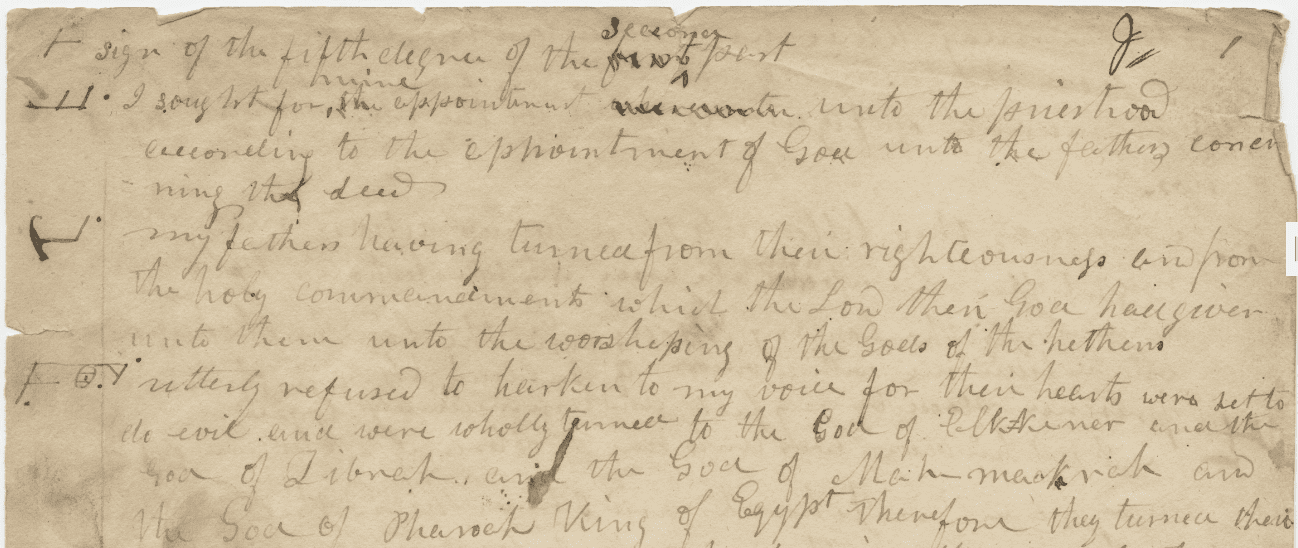 sign of the fifth degree of the second first part J 1
I sought for mine the appointment unto the priesthood
according to the appointment of God unto the fathers concer
ning the seed
my fathers having turned from their righteousness and from
the holy commandments which the Lord their God had given
unto them unto the worshiping of the Gods of the hethens
utterly refused to harken to my voice for their hearts were set to
do evil and were wholly turned to the God of Elkkener and the
God of Zibnah, and the God of Mahmackrah and
the God of Pharoah King of Egypt Therefore they turned their